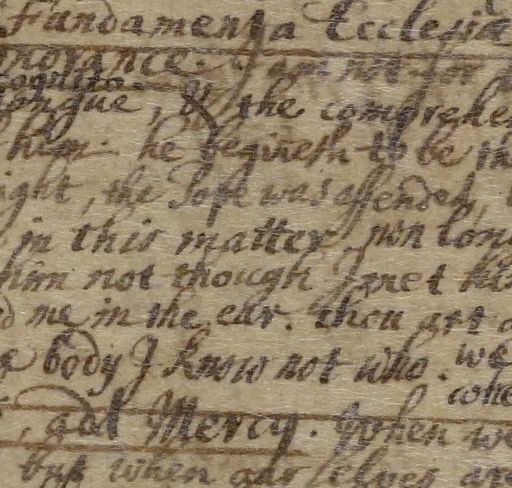 Fundamenta Ecclesia
norance. I am not for
cognito.
tongue, & the comprehen
him. he begineth to be th
ight, the Pope was offended,
in this matter. pon long
him not though I met him
d me in the ear. thou art a
a body I know not who. we
whe
, and Mercy. When we
but when our selves are